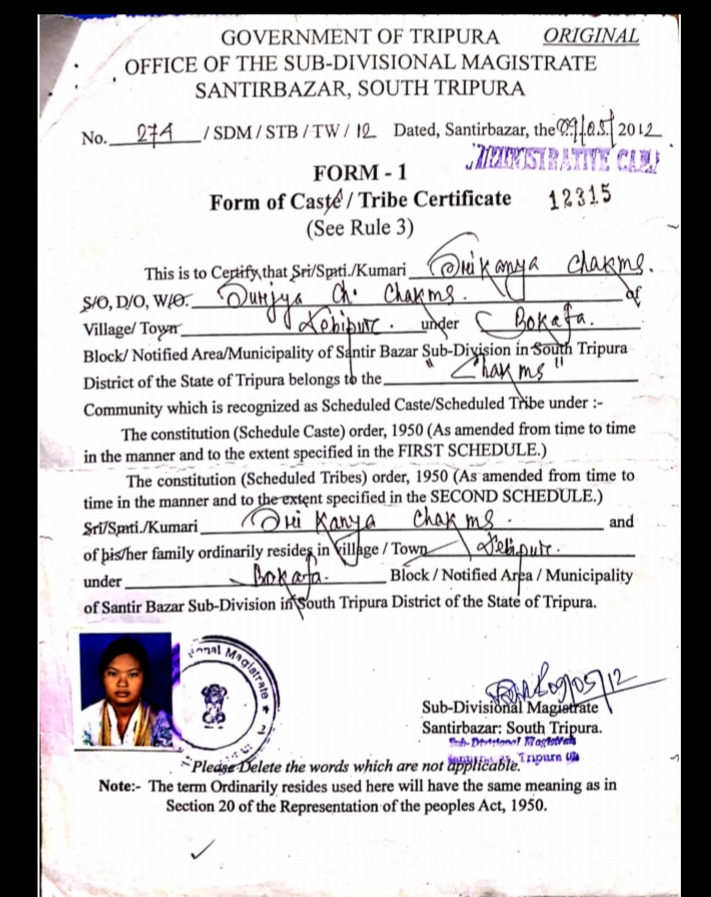 GOVERNMENT OF TRIPURA ORIGINAL
OFFICE OF THE SUB-DIVISIONAL MAGISTRATE
SANTIRBAZAR, SOUTH TRIPURA
No. 274 / SDM / STB / TW / 12 Dated, Santirbazar, the 09/05/2012
FORM - 1
Form of Caste / Tribe Certificate 12315
(See Rule 3)
This is to Certify that Sri/Smti./Kumari Kanya Chakma.
S/O, D/O, W/O. Ch. Chakma. of
Village/ Town Debipur. under Bokafa.
Block/ Notified Area/Municipality of Santir Bazar Sub-Division in South Tripura
District of the State of Tripura belongs to the "Chakma"
Community which is recognized as Scheduled Caste/Scheduled Tribe under :-
The constitution (Schedule Caste) order, 1950 (As amended from time to time
in the manner and to the extent specified in the FIRST SCHEDULE.)
The constitution (Scheduled Tribes) order, 1950 (As amended from time to
time in the manner and to the extent specified in the SECOND SCHEDULE.)
Sri/Smti./Kumari Kanya Chakma. and
of his/her family ordinarily resides in village / Town Debipur.
under Bokafa. Block / Notified Area / Municipality
of Santir Bazar Sub-Division in South Tripura District of the State of Tripura.
onal Magistrate
09/05/12
Sub-Divisional Magistrate
Santirbazar: South Tripura.
Sub-Divisional Magistrate
Tripura
*Please Delete the words which are not applicable.
Note:- The term Ordinarily resides used here will have the same meaning as in
Section 20 of the Representation of the peoples Act, 1950.